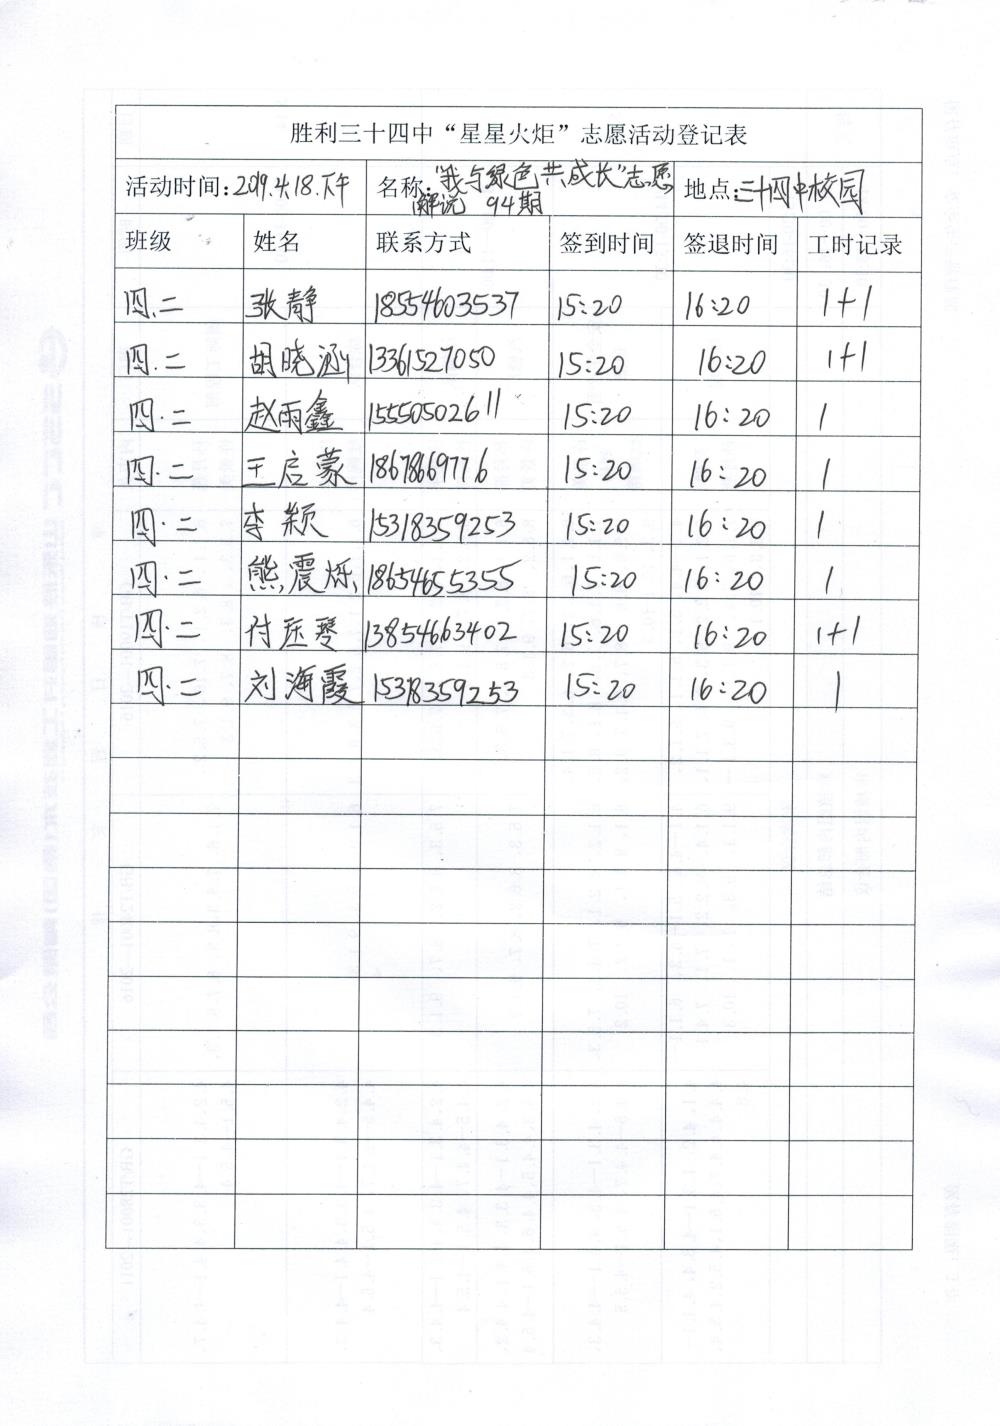 胜利三十四中“星星火炬”志愿活动登记表
活动时间:2019.4.18.下午 名称:“我与绿色共成长”志愿解说 94期 地点:三十四中校园
班级 姓名 联系方式 签到时间 签退时间 工时记录
四.二 张静 18554603537 15:20 16:20 1+1
四.二 胡晓涵 13361527050 15:20 16:20 1+1
四.二 赵雨鑫 15550502611 15:20 16:20 1
四.二 王启蒙 18678669776 15:20 16:20 1
四.二 李颖 15318359253 15:20 16:20 1
四.二 熊震烁 18654655355 15:20 16:20 1
四.二 付珏琴 13854663402 15:20 16:20 1+1
四.二 刘海霞 15318359253 15:20 16:20 1